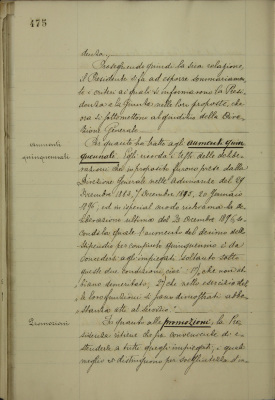 475
denza.
Proseguendo quindi la sua relazione,
il Presidente si fa ad esporre sommariamen-
te i criteri ai quali s'informarono la Presi-
denza e la Giunta nelle loro proposte, che
ora si sottomettono al giudizio della Dire-
zione Generale.
aumenti
quinquennali
Per quanto ha tratto agli aumenti quin-
quennali Egli ricorda i testi delle delibe-
razioni che in proposito furono prese dalla
Direzione Generale nelle adunanze del 29
Dicembre 1883, 7 Dicembre 20 Gennaio
ed in special modo richiama la de-
liberazione ultima del 20 Dicembre
condo la quale l'aumento del decimo dello
stipendio per compiuto quinquennio è da
concedersi agl'impiegati soltanto sotto
queste due condizioni, cioè: 1º che non ab-
biano demeritato; 2º che nello esercizio del-
le loro funzioni si siano dimostrati abba-
stanza atti al servizio.
Promozioni
In quanto alle promozioni, la Pre-
sidenza ritiene che più convenientemente
a tutti quegli impiegati, i quali
meglio si distinguono per